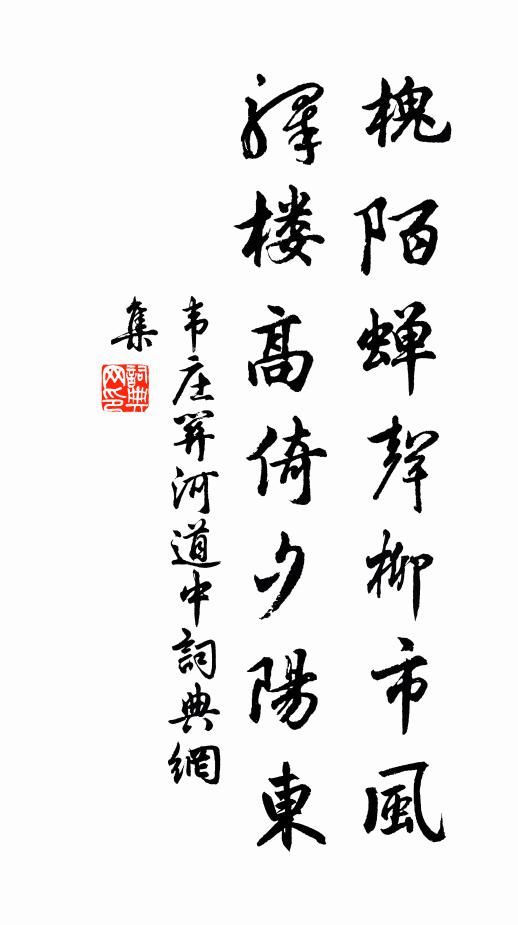 槐陌蟬聲柳市風
驛樓高倚夕陽東
韦庄関河道中詞典網
集
詞典
网印